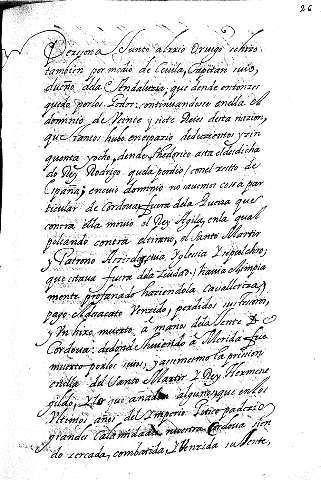 26
Persona Junto al
tambien por medio de Cecila, Capitan suio,
dueño dela Andaluzia, que dende entonces
quedo por los Godos: continuandose en ella el
dominio de Veinte y siete Reies desta nazion,
que tantos hubo en espazio de dozientos y zin
quenta y ocho, dende Theoderico asta el desdicha
do Rey Rodrigo q la perdio, con el resto de
España; en cuio dominio no auemos cossa par
ticular de Cordoua, fuera dela Guerra que
contra ella movio el Rey Agila, en la qual
peleando contra el tirano, el Santo Martir
y Patrono Acisclo, cuia Yglesia y sepulchro,
que estava fuera dela Ziudad, havia impia
mente profanado haziendola cavalleriza,
pago su desacato Venzido, perdidos su tesoro,
y Un hixo muerto, à manos dela Gente de
Cordoua: de donde huiendo à Merida fue
muerto por los suios, y assimesmo la prision
en ella del Santo Martir y Rey Hermene
gildo, y lo que añaden algunos que en los
Ultimos años del Imperio Gotico padezio
grandes Calamidades nuestra Cordoua sien
do zercada, combatida, y Venzida su Gente,